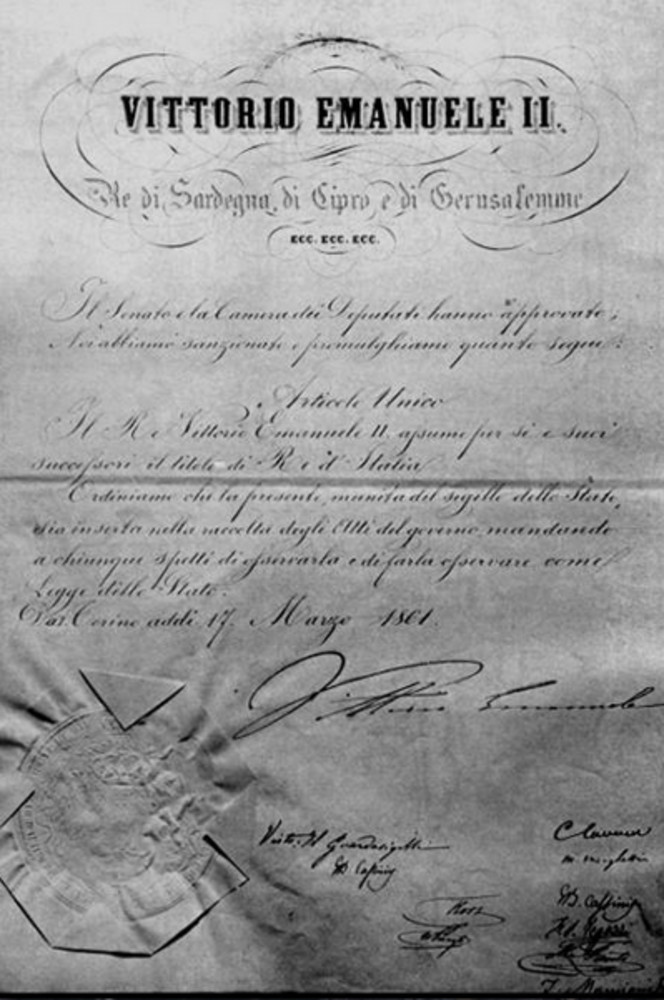 VITTORIO EMANUELE II.
Re di Sardegna, di Cipro e di Gerusalemme
ECC. ECC. ECC.
Il Senato e la Camera dei Deputati hanno approvato;
Noi abbiamo sanzionato e promulghiamo quanto segue:
Articolo Unico
Il Re Vittorio Emanuele II assume per sé e suoi
successori il titolo di Re d'Italia
Ordiniamo che la presente, munita del sigillo dello Stato,
sia inserta nella raccolta degli Atti del governo, mandando
a chiunque spetti di osservarla e di farla osservare come
Legge dello Stato.
Dat. Torino addì 17. Marzo 1861.
Vittorio Emanuele
Visto: Il Guardasigilli
G. B. Cassinis
C Cavour
M. Minghetti
G. B. Cassinis